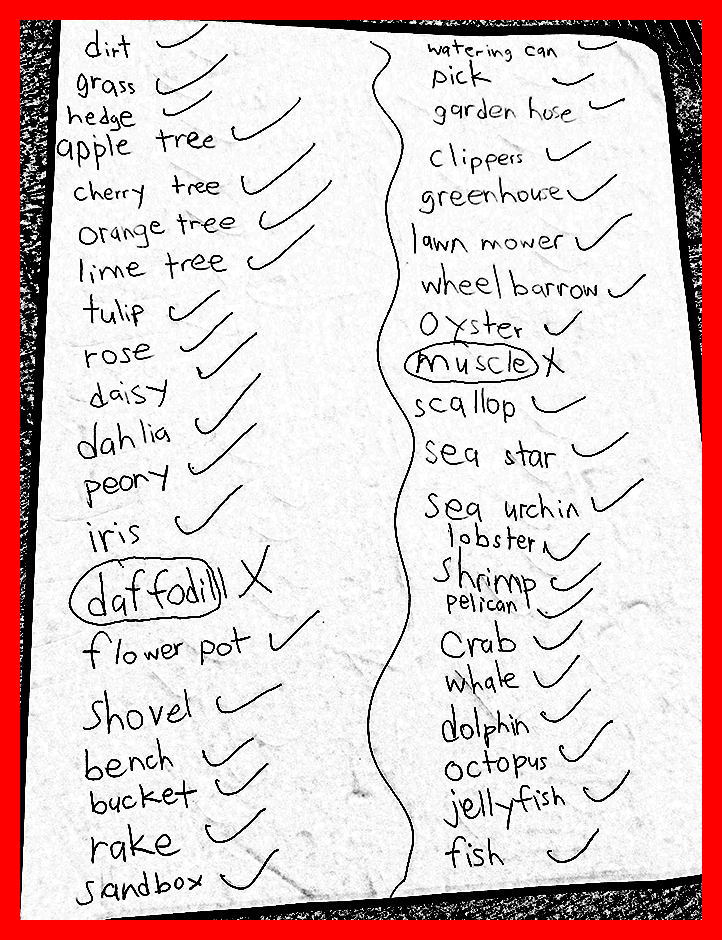 dirt
grass
hedge
apple tree
cherry tree
orange tree
lime tree
tulip
rose
daisy
dahlia
peony
iris
daffodill
flower pot
shovel
bench
bucket
rake
sandbox
watering can
pick
garden hose
clippers
greenhouse
lawn mower
wheel barrow
oyster
muscle
scallop
sea star
sea urchin
lobster
shrimp
pelican
crab
whale
dolphin
octopus
jellyfish
fish